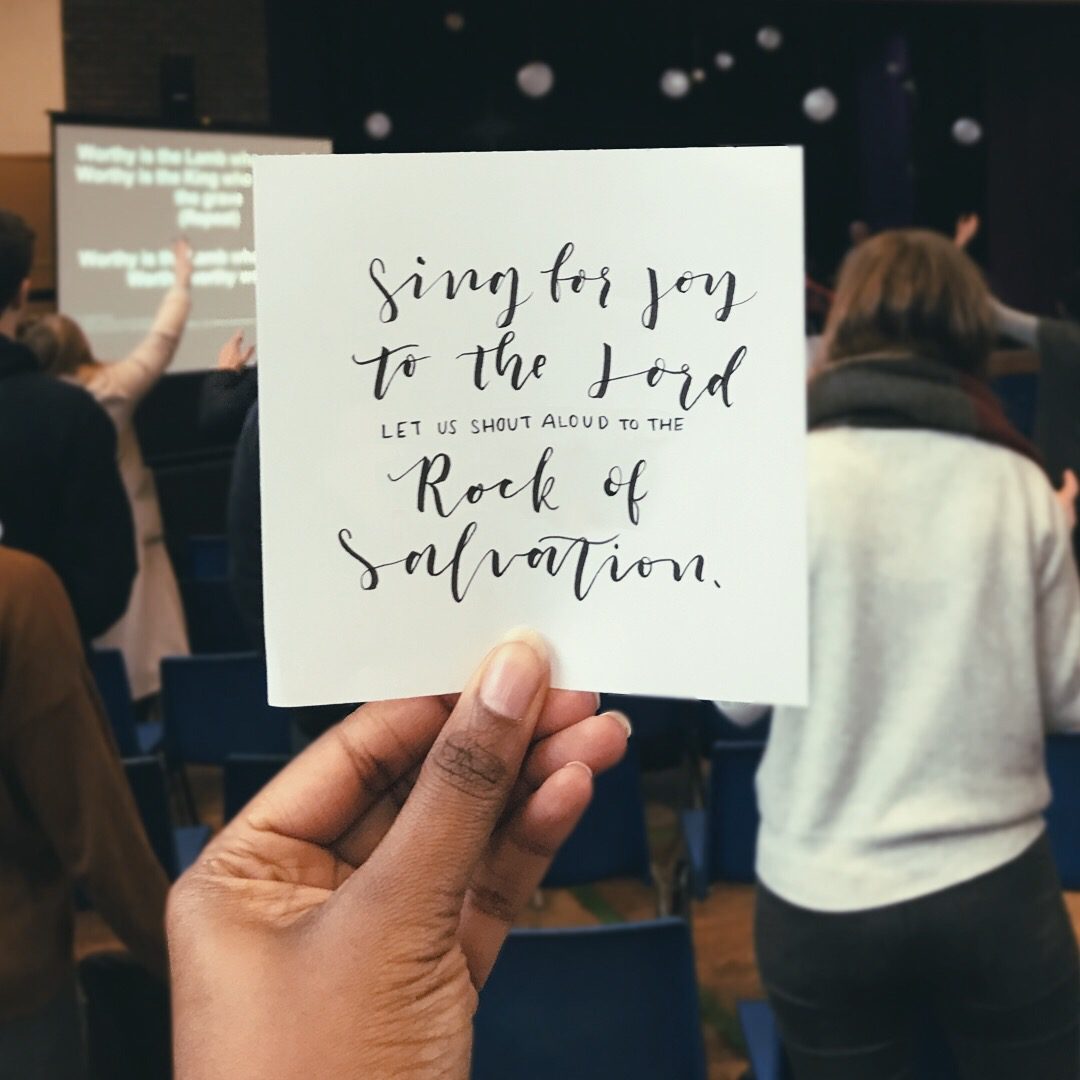 Worthy is the Lamb who
Worthy is the King who
the grave
(Repeat)
Worthy is the
Worth worthy
Sing for Joy
to the Lord
LET US SHOUT ALOUD TO THE
Rock of
Salvation.